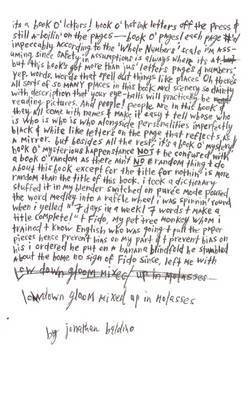 its a book o' letters! book o' hot ink letters off the press &
still a-boilin' on the pages — book o' pages! each page #'d
impeccably according to the 'Whole Numbers' scale i'm ass-
uming since safety in assumptions is always where its at
but this book's got more than jus' letters pages & numbers'
yep. words. words that spell out things like places. Oh there's
all sorts of so many places in this book and scenery so dainty
with description that your eye-balls will practically be
reading pictures. And people! people are in this book &
they all come with names & make it easy t' tell whose who
is who is who is who alongside personalities imperfectly
black & white like letters on the page that reflect us as
a mirror. but besides all the rest: it's a book o' mystery!
book o' mysterious happenstance not t' be confused with
a book o' random as there aint NO random thing t' do
about this book except for the title for nothin' is more
random than the title of this book. i took a dictionary
stuffed it in my blender switched on puree mode poured
the word medley into a raffle wheel i was spinnin' round
when i yelled "7 days in a week! 7 words t' make a
title complete!" t' Fido, my pet tree monkey whom i
trained t' know English who was going t' pull the paper
pieces hence prevent bias on my part & t' prevent bias on
his i ordered he put on a banana blindfold he stumbled
about the home no sign of Fido since, left me with
low down gloom mixed up in molasses
lowdown gloom mixed up in molasses
by jonathan